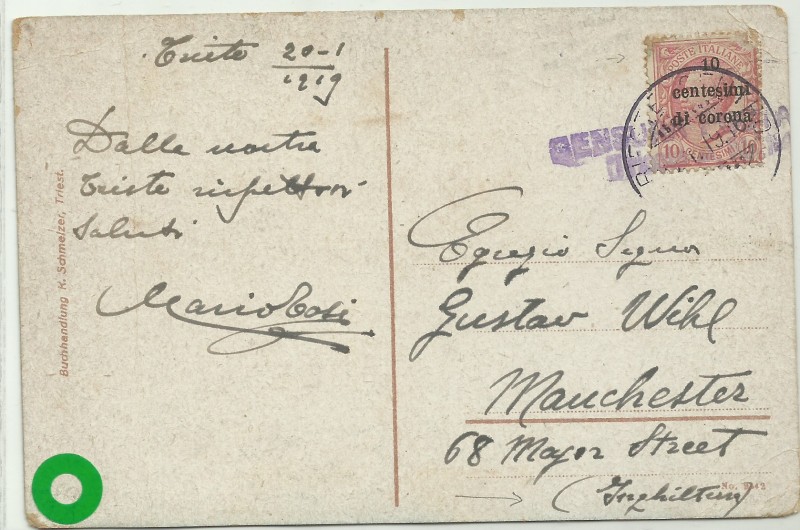 Trieste 20-1
1919
Dalla nostra
Trieste rispettosi
saluti
Mario Cosi
Buchhandlung K. Schmelzer, Triest.
POSTE ITALIANE
10
centesimi
di corona
10 CENTESIMI 10
Egregio Signor
Gustav Wihl
Manchester
68 Major Street
(Inghilterra)